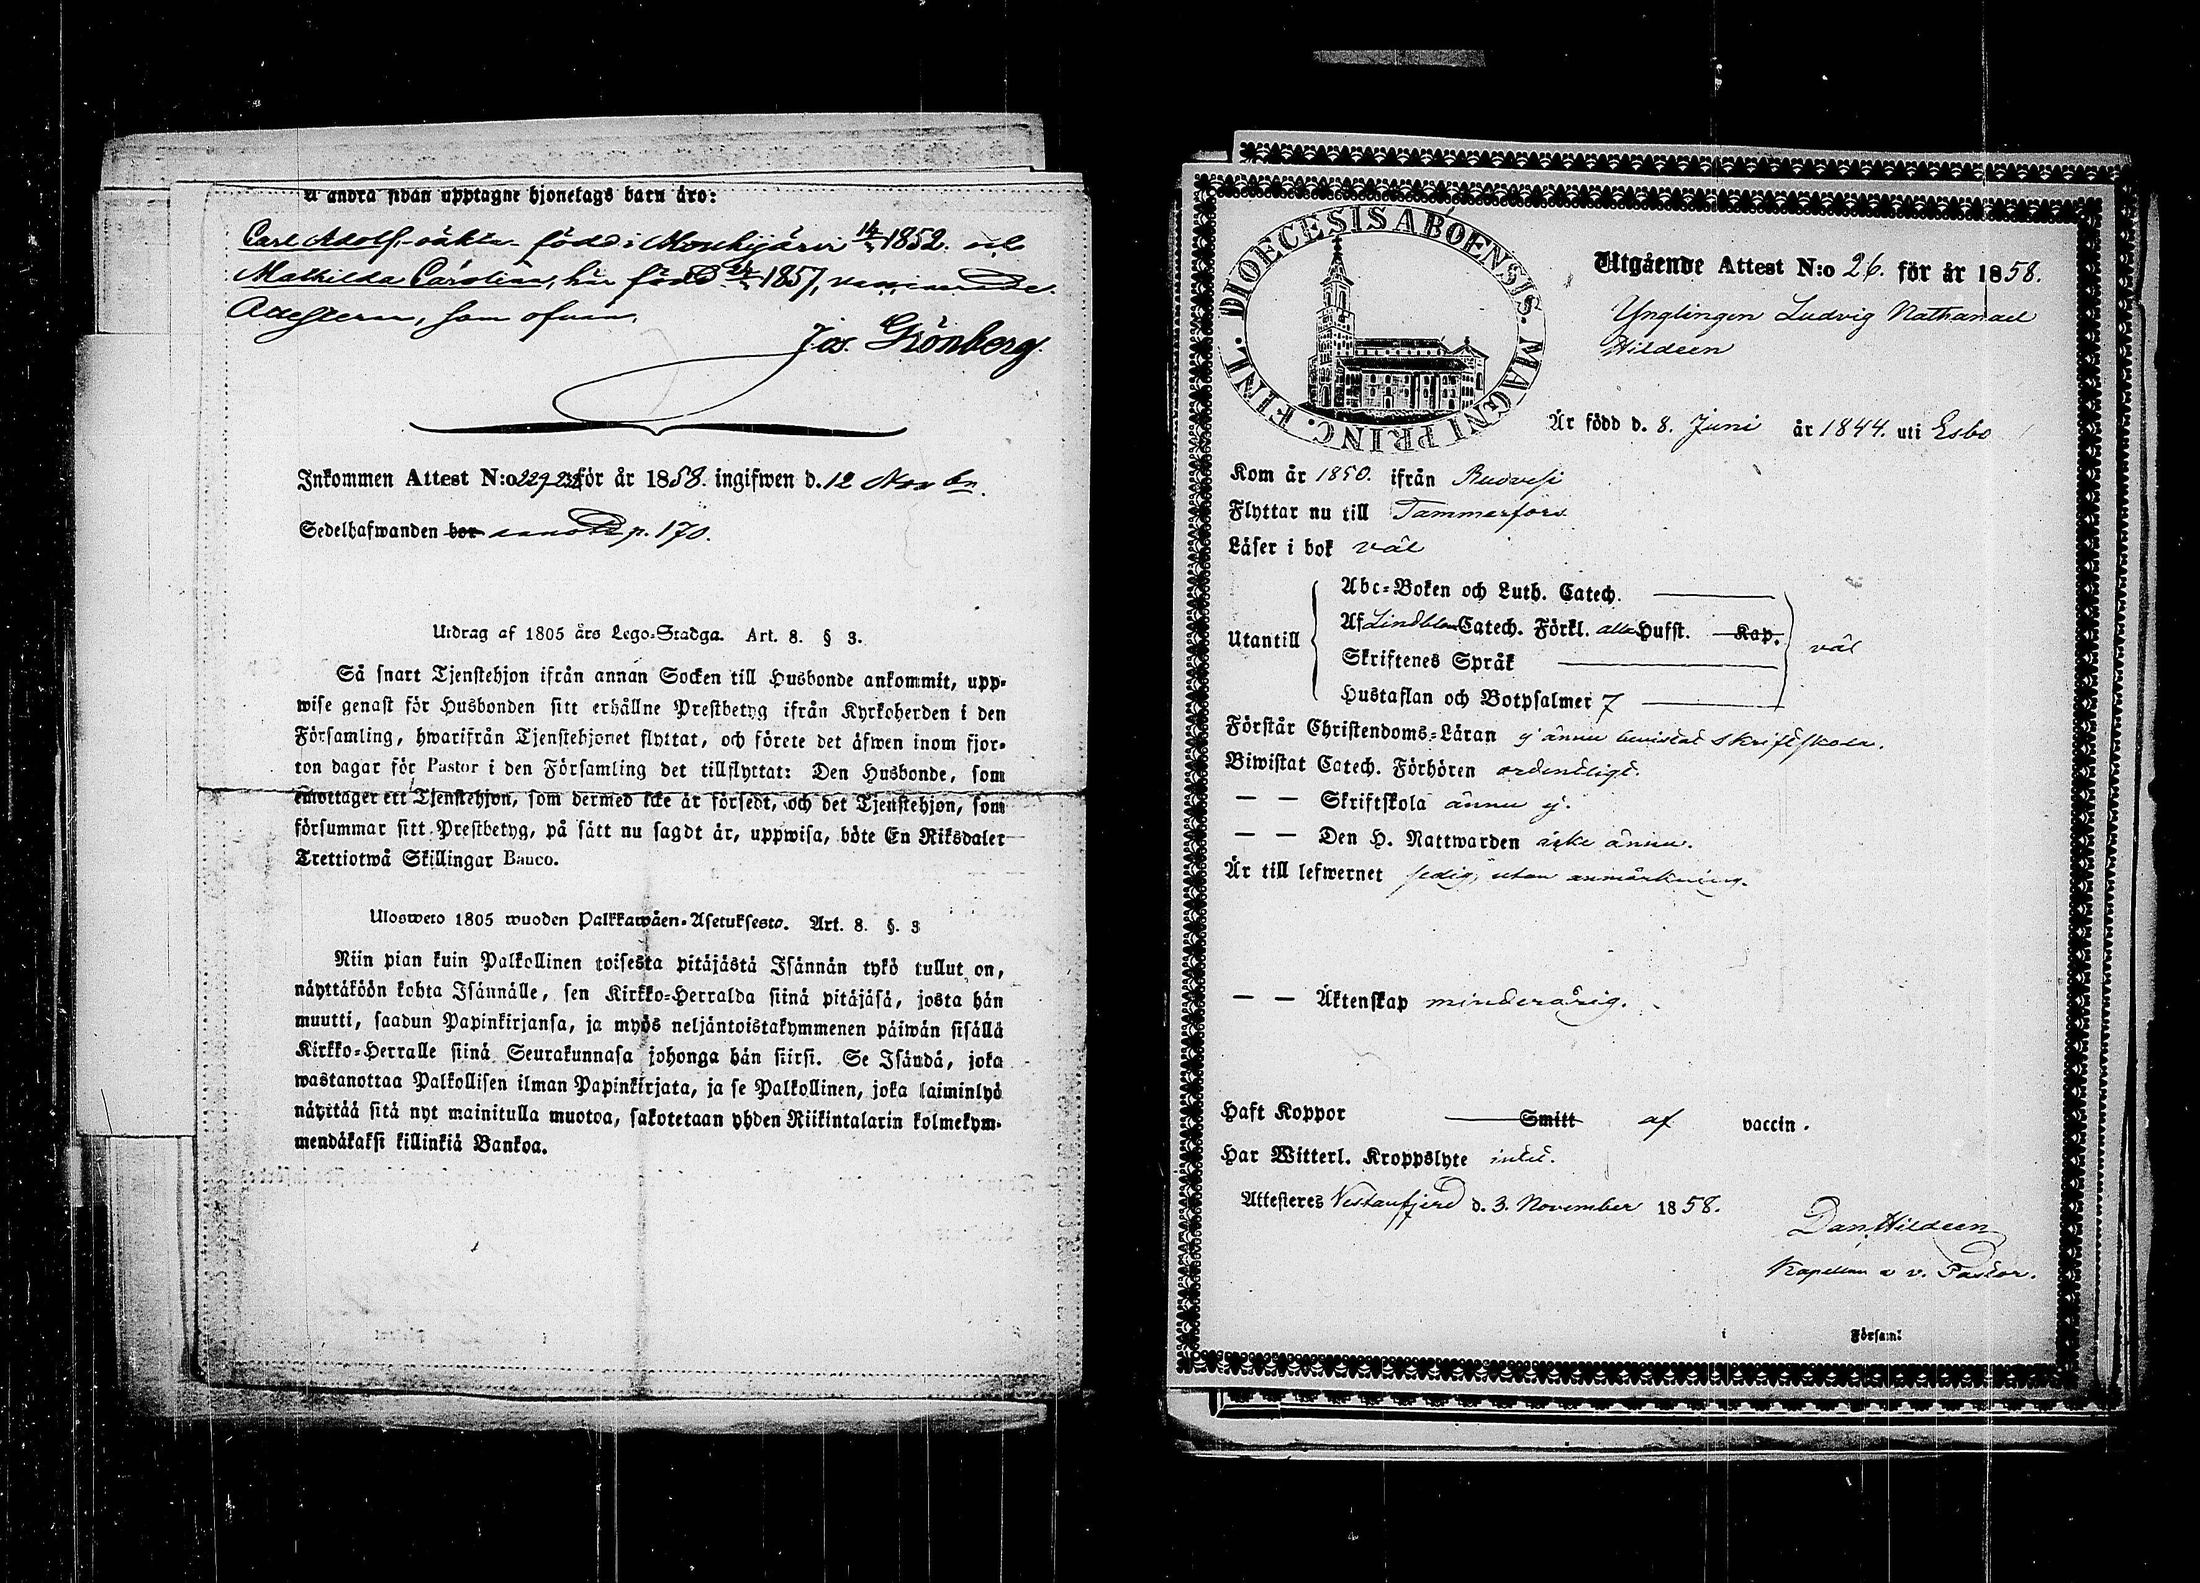 å andra sidan upptagne hjonelags barn äro:
Carl Adolf, äkta född i Mouhijärvi 1852. och
Mathilda Carolina, här född 1857, vaccinerade.
Attesterar, som ofvan,
Jos. Grönberg.
Inkommen Attest N:o 229-232 för år 1858. ingifwen d. 12 Novbr.
Sedelhafwanden bor p. 170.
Utdrag af 1805 års Lego-Stadga. Art. 8. § 3.
Så snart Tjenstehjon ifrån annan Socken till Husbonde ankommit, upp-
wise genast för Husbonden sitt erhållne Prestbetyg ifrån Kyrkoherden i den
Församling, hwarifrån Tjenstehjonet flyttat, och förete det äfwen inom fjor-
ton dagar för Pastor i den Församling det tillflyttat: Den Husbonde, som
emottager ett Tjenstehjon, som dermed icke är försedt, och det Tjenstehjon, som
försummar sitt Prestbetyg, på sätt nu sagdt är, uppwisa, böte En Riksdaler
Trettiotwå Skillingar Banco.
Ulosweto 1805 wuoden Palkkawäen-Asetuksesta. Art. 8. §. 3
Niin pian kuin Palkollinen toisesta pitäjästä Isännän tykö tullut on,
näyttäköön kohta Isännälle, sen Kirkko-Herralda siinä pitäjäsä, josta hän
muutti, saadun Papinkirjansa, ja myös neljäntoistakymmenen päiwän sisällä
Kirkko-Herralle siinä Seurakunnasa johonga hän siirsi. Se Isändä, joka
wastanottaa Palkollisen ilman Papinkirjata, ja se Palkollinen, joka laiminlyö
näyttää sitä nyt mainitulla muotoa, sakotetaan yhden Riikintalarin kolmekym-
mendäkaksi killinkiä Bankoa.
DIOECESIS ABOENSIS. MAGNI PRINC. FINL.
Utgående Attest N:o 26. för år 1858.
Ynglingen Ludvig Nathanael
Hildeen
Är född d. 8. Juni år 1844. uti Esbo
Kom år 1850. ifrån Ruovesi
Flyttar nu till Tammerfors
Läser i bok väl
Utantill
Abc-Boken och Luth. Catech.
Af Lindbloms Catech. Förkl. alla Hufst. Kap.
Skriftenes Språk
Hustaflan och Botpsalmer 7
väl
Förstår Christendoms-Läran ej ännu bevistat skriftskola.
Biwistat Catech. Förhören ordentligt.
— — Skriftskola ännu ej.
— — Den H. Nattwarden icke ännu.
Är till lefwernet sedig, utan anmärkning.
— — Äktenskap minderårig.
Haft Koppor Smitt af vaccin.
Har Witterl. Kroppslyte intet.
Attesteres Vestanfjerd d. 3. November 1858.
Dan. Hildeen
Kapellan o v. Pastor.
Församl